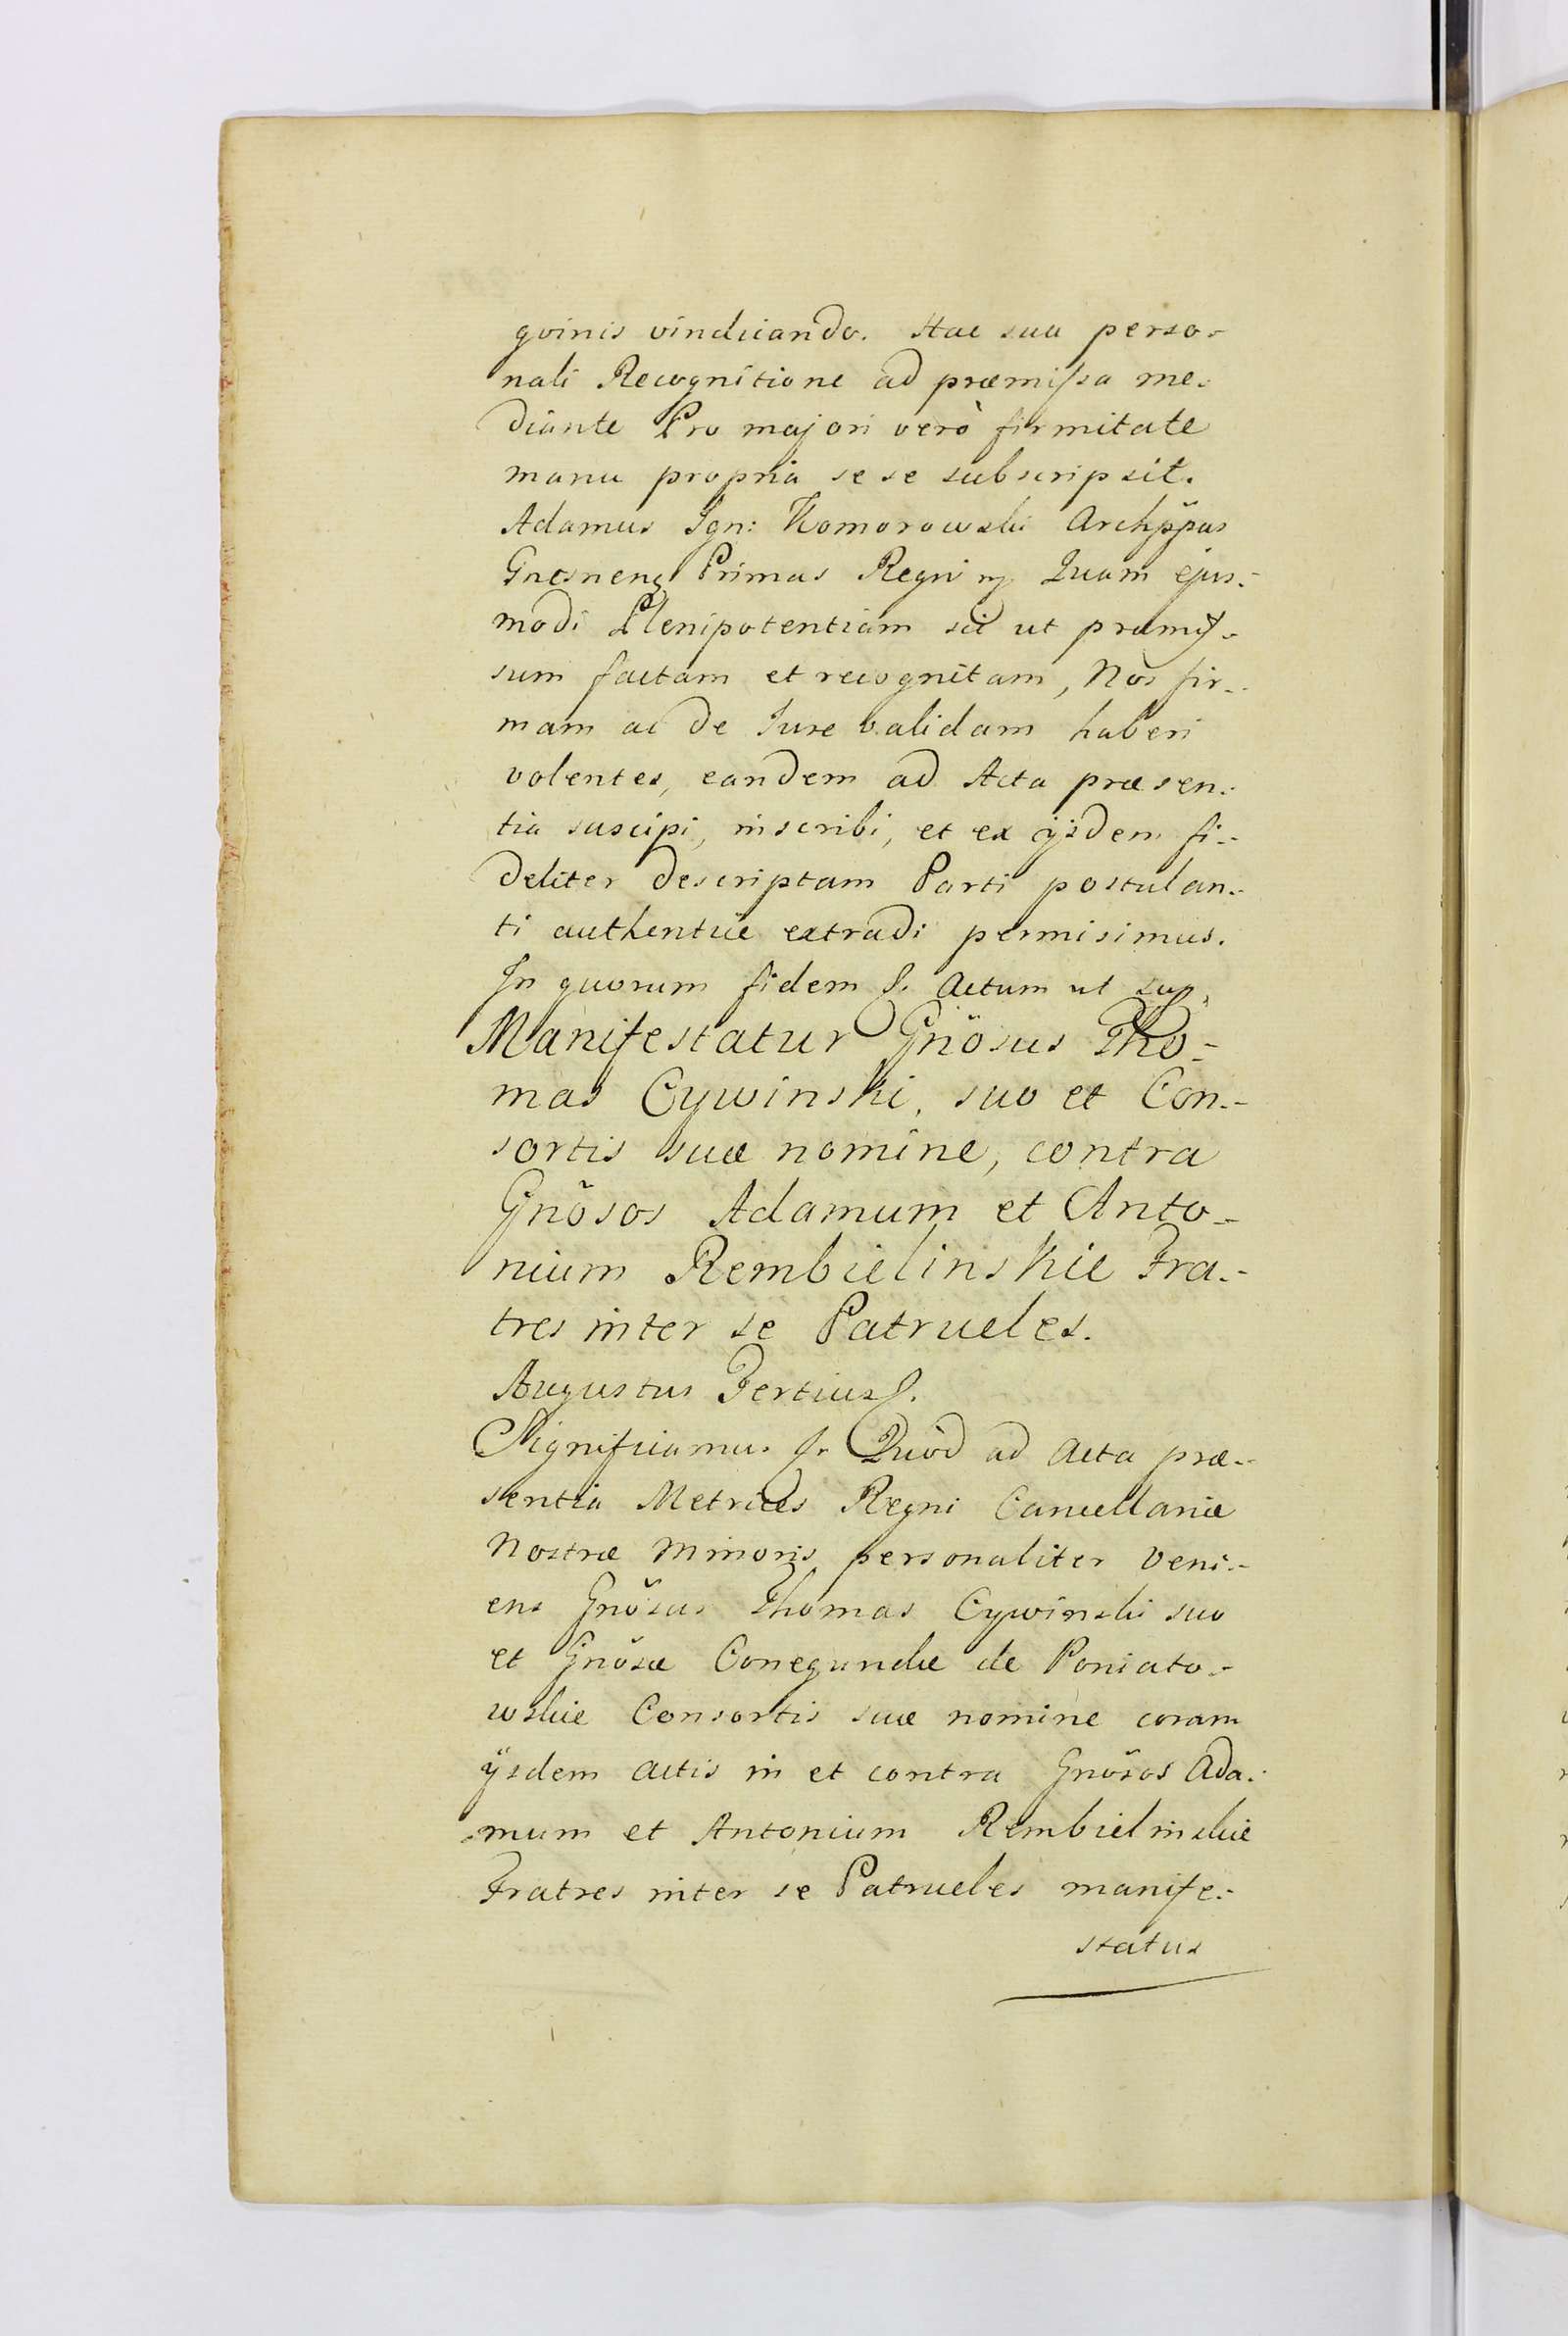 gvinis vindicando. Hac sua perso-
nali Recognitione ad præmissa me-
diante Pro majori verò firmitate
manu propria se se subscripsit.
Adamus Ign: Komorowski Archppus
Gnesneng Primas Regni mp Quam ejus-
modi Plenipotentiam sic ut præmis-
sum factam et recognitam, Nos fir-
mam ac de Jure validam haberi
volentes, eandem ad Acta præsen-
tia suscipi, inscribi, et ex ijsdem fi-
deliter descriptam Parti postulan-
ti authenticè extradi permisimus.
In quorum fidem &. Actum ut sup,
Manifestatur Gnosus Tho-
mas Cywinski, suo et Con-
sortis suæ nomine, contra
Gnõsos Adamum et Anto-
nium Rembielinskie Fra-
tres inter se Patrueles.
Augustus Tertius &.
Significamus &. Quòd ad Acta præ-
sentia Metrices Regni Cancellariæ
Nostræ Minoris personaliter veni-
ens Gnõsus Thomas Cywinski suo
et Gnõsæ Conegundæ de Poniato-
wskie Consortis suæ nomine coram
ijsdem Actis in et contra Gnõsos Ada-
mum et Antonium Rembielinskie
Fratres inter se Patrueles manife-
status